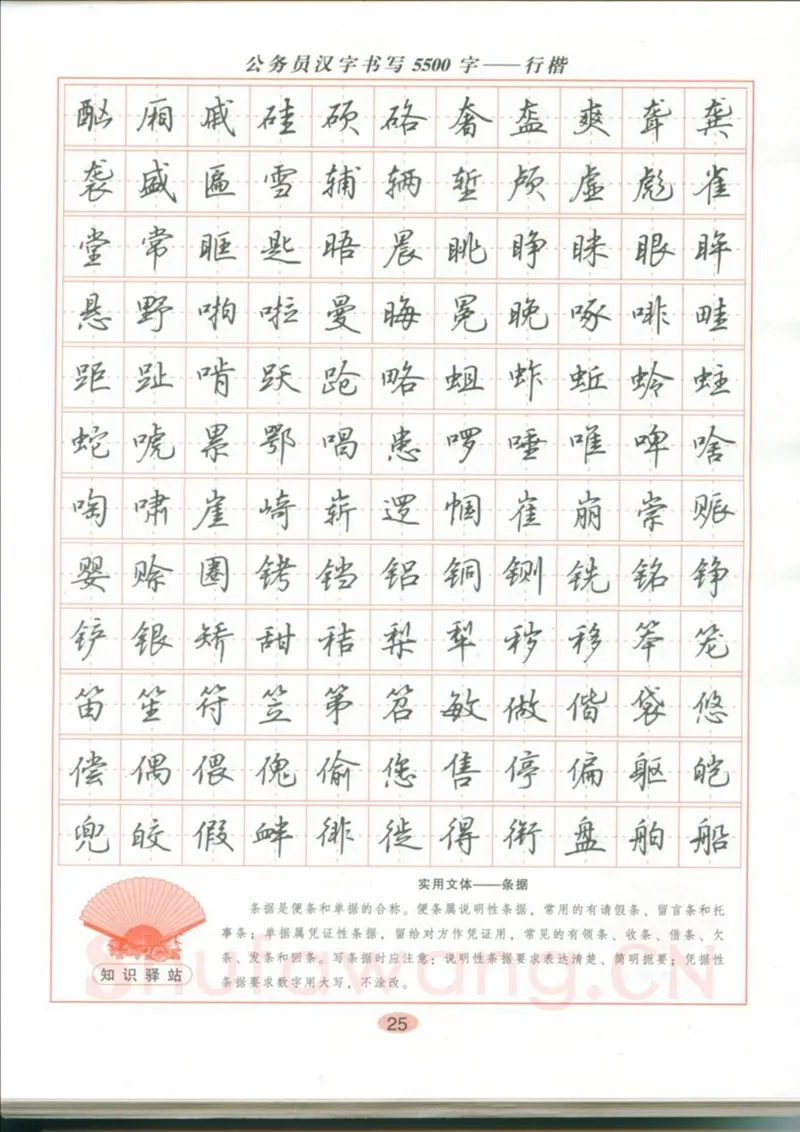 公务员汉字书写5500字——行楷
酗厢戚硅硕硌奢盔爽聋龚
袭盛匾雪辅辆堑颅虚彪雀
堂常眶匙晤晨眺睁眯眼眸
悬野啪啦曼晦冕晚啄啡畦
距趾啃跃跄略蛆蚱蚯蛉蛀
蛇唬累鄂唱患啰唾唯啤啥
啕啸崖崎崭逻帼崔崩崇赈
婴赊圈铐铛铝铜铡铣铭铮
铲银矫甜秸梨犁秽移笨笼
笛笙符笠第笤敏做偕袋悠
偿偶偎傀偷您售停偏躯皑
兜皎假衅徘徙得衔盘舶船
实用文体——条据
条据是便条和单据的合称。便条属说明性条据，常用的有请假条、留言条和托
事条；单据属凭证性条据，留给对方作凭证用，常见的有领条、收条、借条、欠
条、发条和回条。写条据时应注意：说明性条据要求表达清楚、简明扼要；凭据性
条据要求数字用大写，不涂改。
知识驿站
Shufawang.CN
25